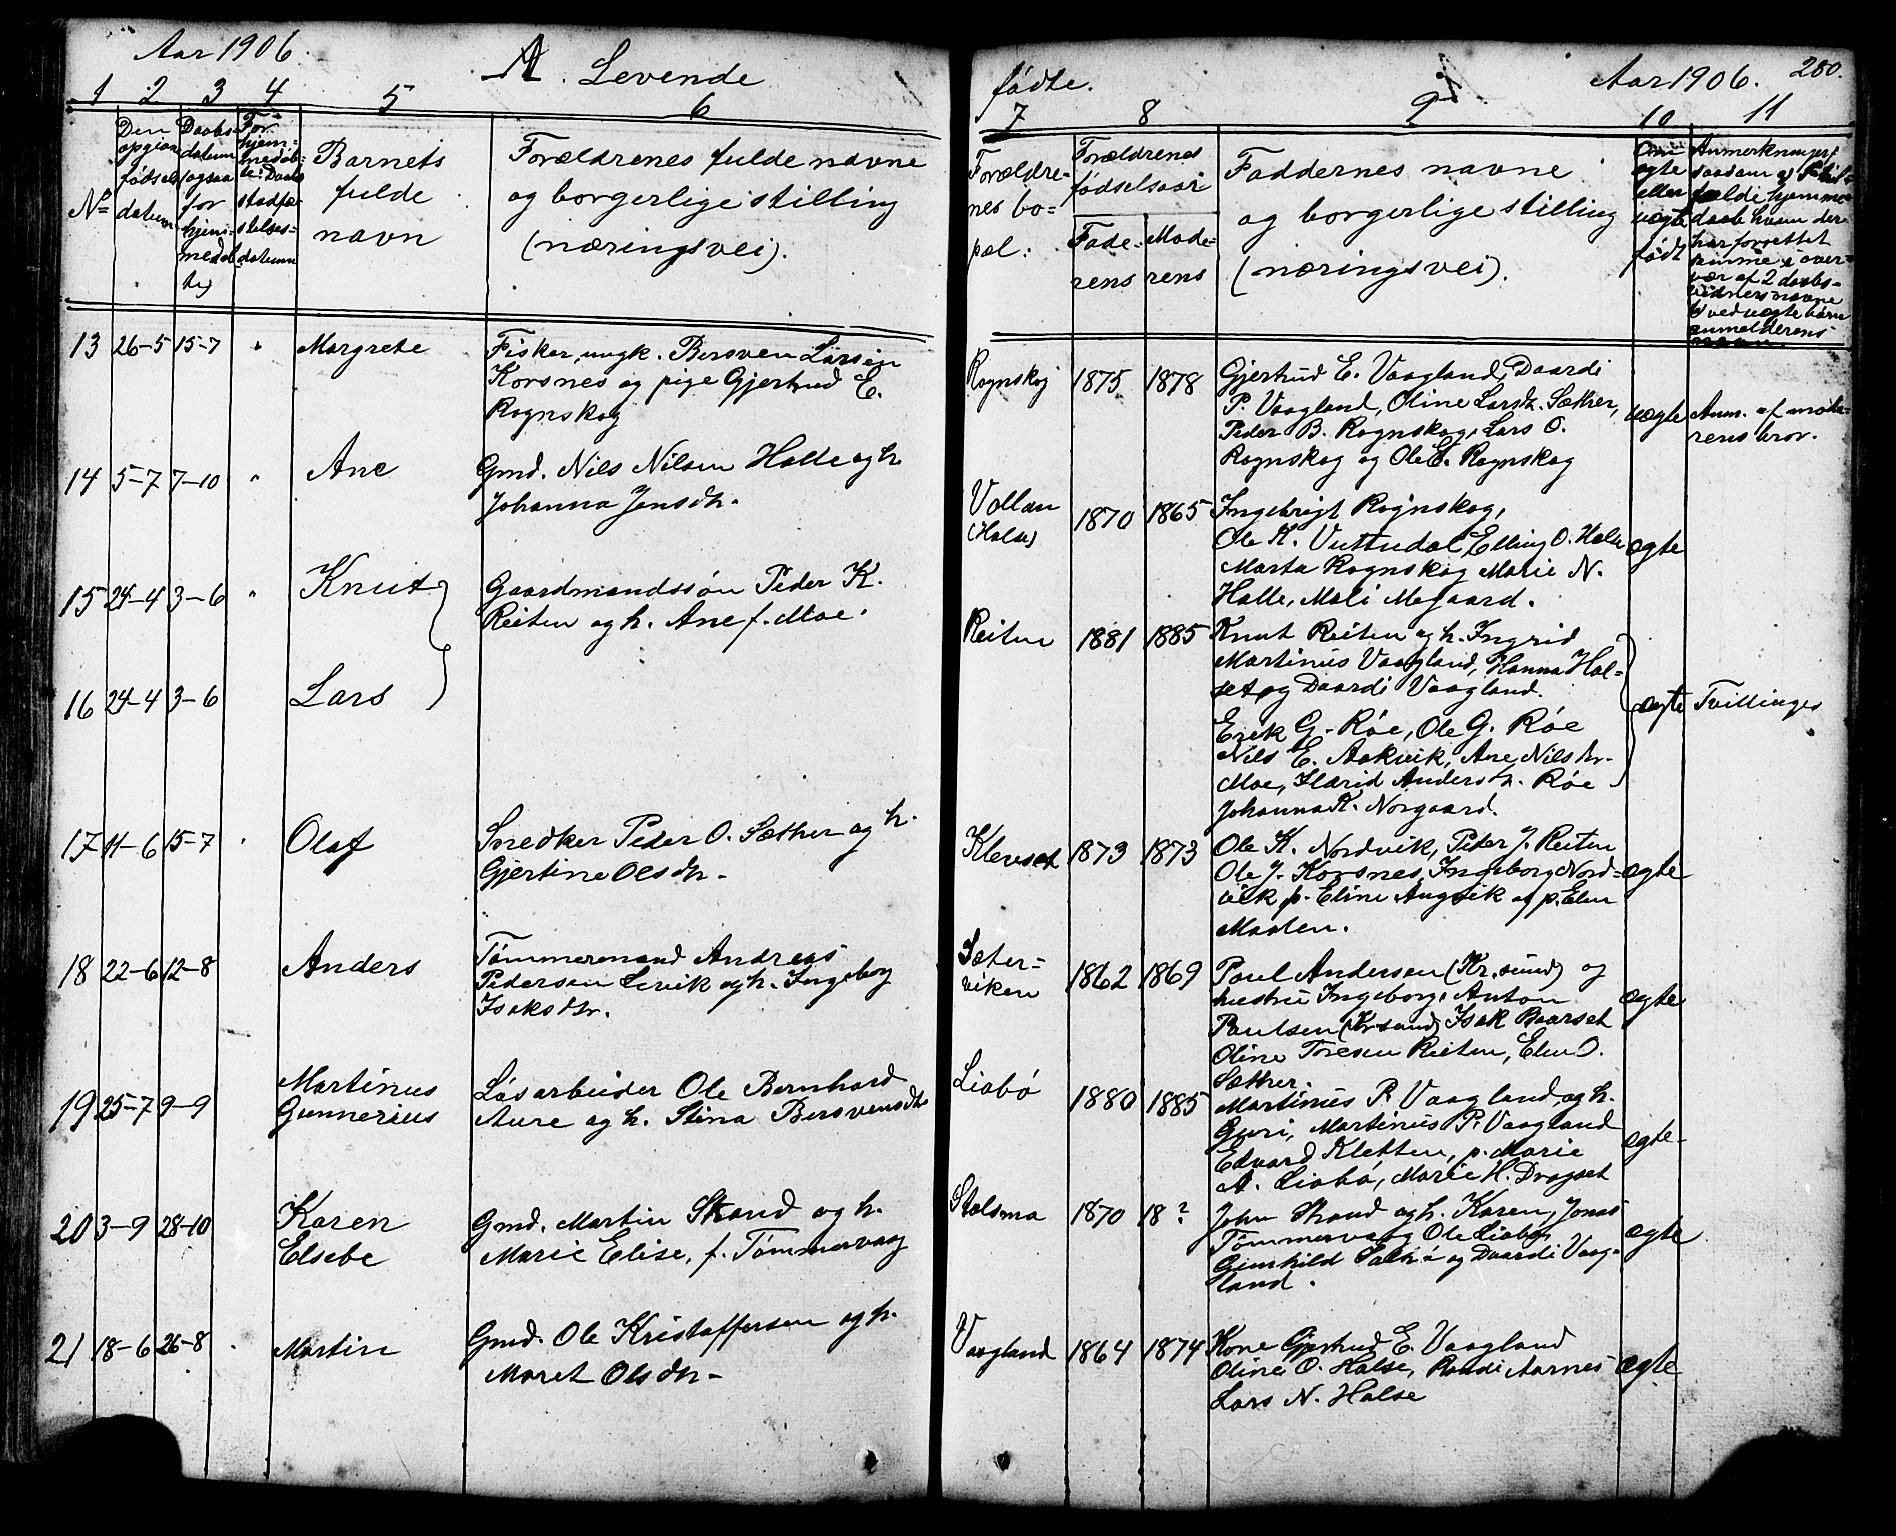 Aar 1906.
A. Levende
1 2 3 4 5 6
No
Den
opgivne
fødsels
datum
Daabs
datum
(ogsaa
for
hjem-
medøb
te)
For
hjem-
medøb-
te: Daabs
stadfæ-
stelses-
datum
Barnets
fulde
navn
Forældrenes fulde navne
og borgerlige stilling
(næringsvei).
13 26-5 15-7 " Margrete
Fisker, ungk. Bersven Larsen
Korsnes og pige Gjertrud E.
Rognskog
14 5-7 7-10 " Ane
Gmd. Nils Nilsen Halle og h.
Johanna Jonsdtr.
15 24-4 3-6 " Knut
Gaardmandssøn Peder K.
Reiten og h. Ane f. Moe.
16 24-4 3-6 Lars
17 11-6 15-7 " Olaf
Snedker Peder O. Sæther og h.
Gjertine Olsdtr.
18 22-6 12-8 Anders
Tømmermand Andreas
Pedersen Levik og h. Ingeborg
Isaksdtr.
19 25-7 9-9 Martinus
Gunnerius
Løsarbeider Ole Bernhard
Aure og h. Stina Bersvensdtr
20 3-9 28-10 Karen
Elsebe
Gmd. Martin Strand og h.
Marie Elise, f. Tømmervaag
21 18-6 26-8 " Martin
Gmd. Ole Kristoffersen og h.
Maret Olsdtr.
fødte.
Aar 1906. 280.
7 8 9 10 11
Forældre-
nes bo-
pæl.
Forældrenes
fødselsaar
Fade-
rens
Mode-
rens
Faddernes navne
og borgerlige stilling
(næringsvei).
Om
ægte
eller
uægte
født
Anmerkninger,
saasom ved
hjemme-
daab hvem der
har forrettet
samme i over-
vær af 2 daabs-
vidners navne
ved uægte børn
anmelderens
navn.
Rognskog 1875 1878
Gjertrud E. Vaagland, Daardi
P. Vaagland, Oline Larsdtr. Sæther,
Peder B. Rognskog, Lars O.
Rognskog og Ole E. Rognskog
uægte
Anm. af mode-
rens bror.
Vollan
(Halse)
1870 1865
Ingebrigt Rognskog,
Ole K. Vuttudal, Elling O. Halse
Marta Rognskog Marie N.
Halle, Mali Megaard.
ægte
Reiten 1881 1885
Knut Reiten og h. Ingrid
Martinus Vaagland, Hanna Hal-
set og Daardi Vaagland.
Erik G. Røe, Ole G. Røe
Nils E. Aakvik, Ane Nilsdtr.
Moe, Marid Andersdtr. Røe
Johanna K. Norgaard.
ægte Tvillinger
Klevset 1873 1873
Ole K. Nordvik, Peder J. Reiten
Ole J. Korsnes, Ingeborg Nord-
vik p. Eline Angvik og p. Elen
Maalen.
ægte
Sæter-
viken
1862 1869
Paul Andersen (Kr.sund) og
hustru Ingeborg, Anton
Paulsen (Krsund) Isak Baarset
Oline Toresen Reiten, Elen O.
Sæther.
ægte
Liabø 1880 1885
Martinus P. Vaagland og h.
Guri, Martinus P. Vaagland
Edvard Kletten, p. Marie
A. Liabø, Marie H. Drogset
ægte
Stolsmo 1870 18?
John Strand og h. Karen, Jonas
Tømmervaag Ole Liabø,
Gunhild og Daardi Vaag-
land.
ægte
Vaagland 1864 1874
Kone Gjertrud E. Vaagland
Oline O. Halse, Randi Aarnes
Lars N. Halse
ægte